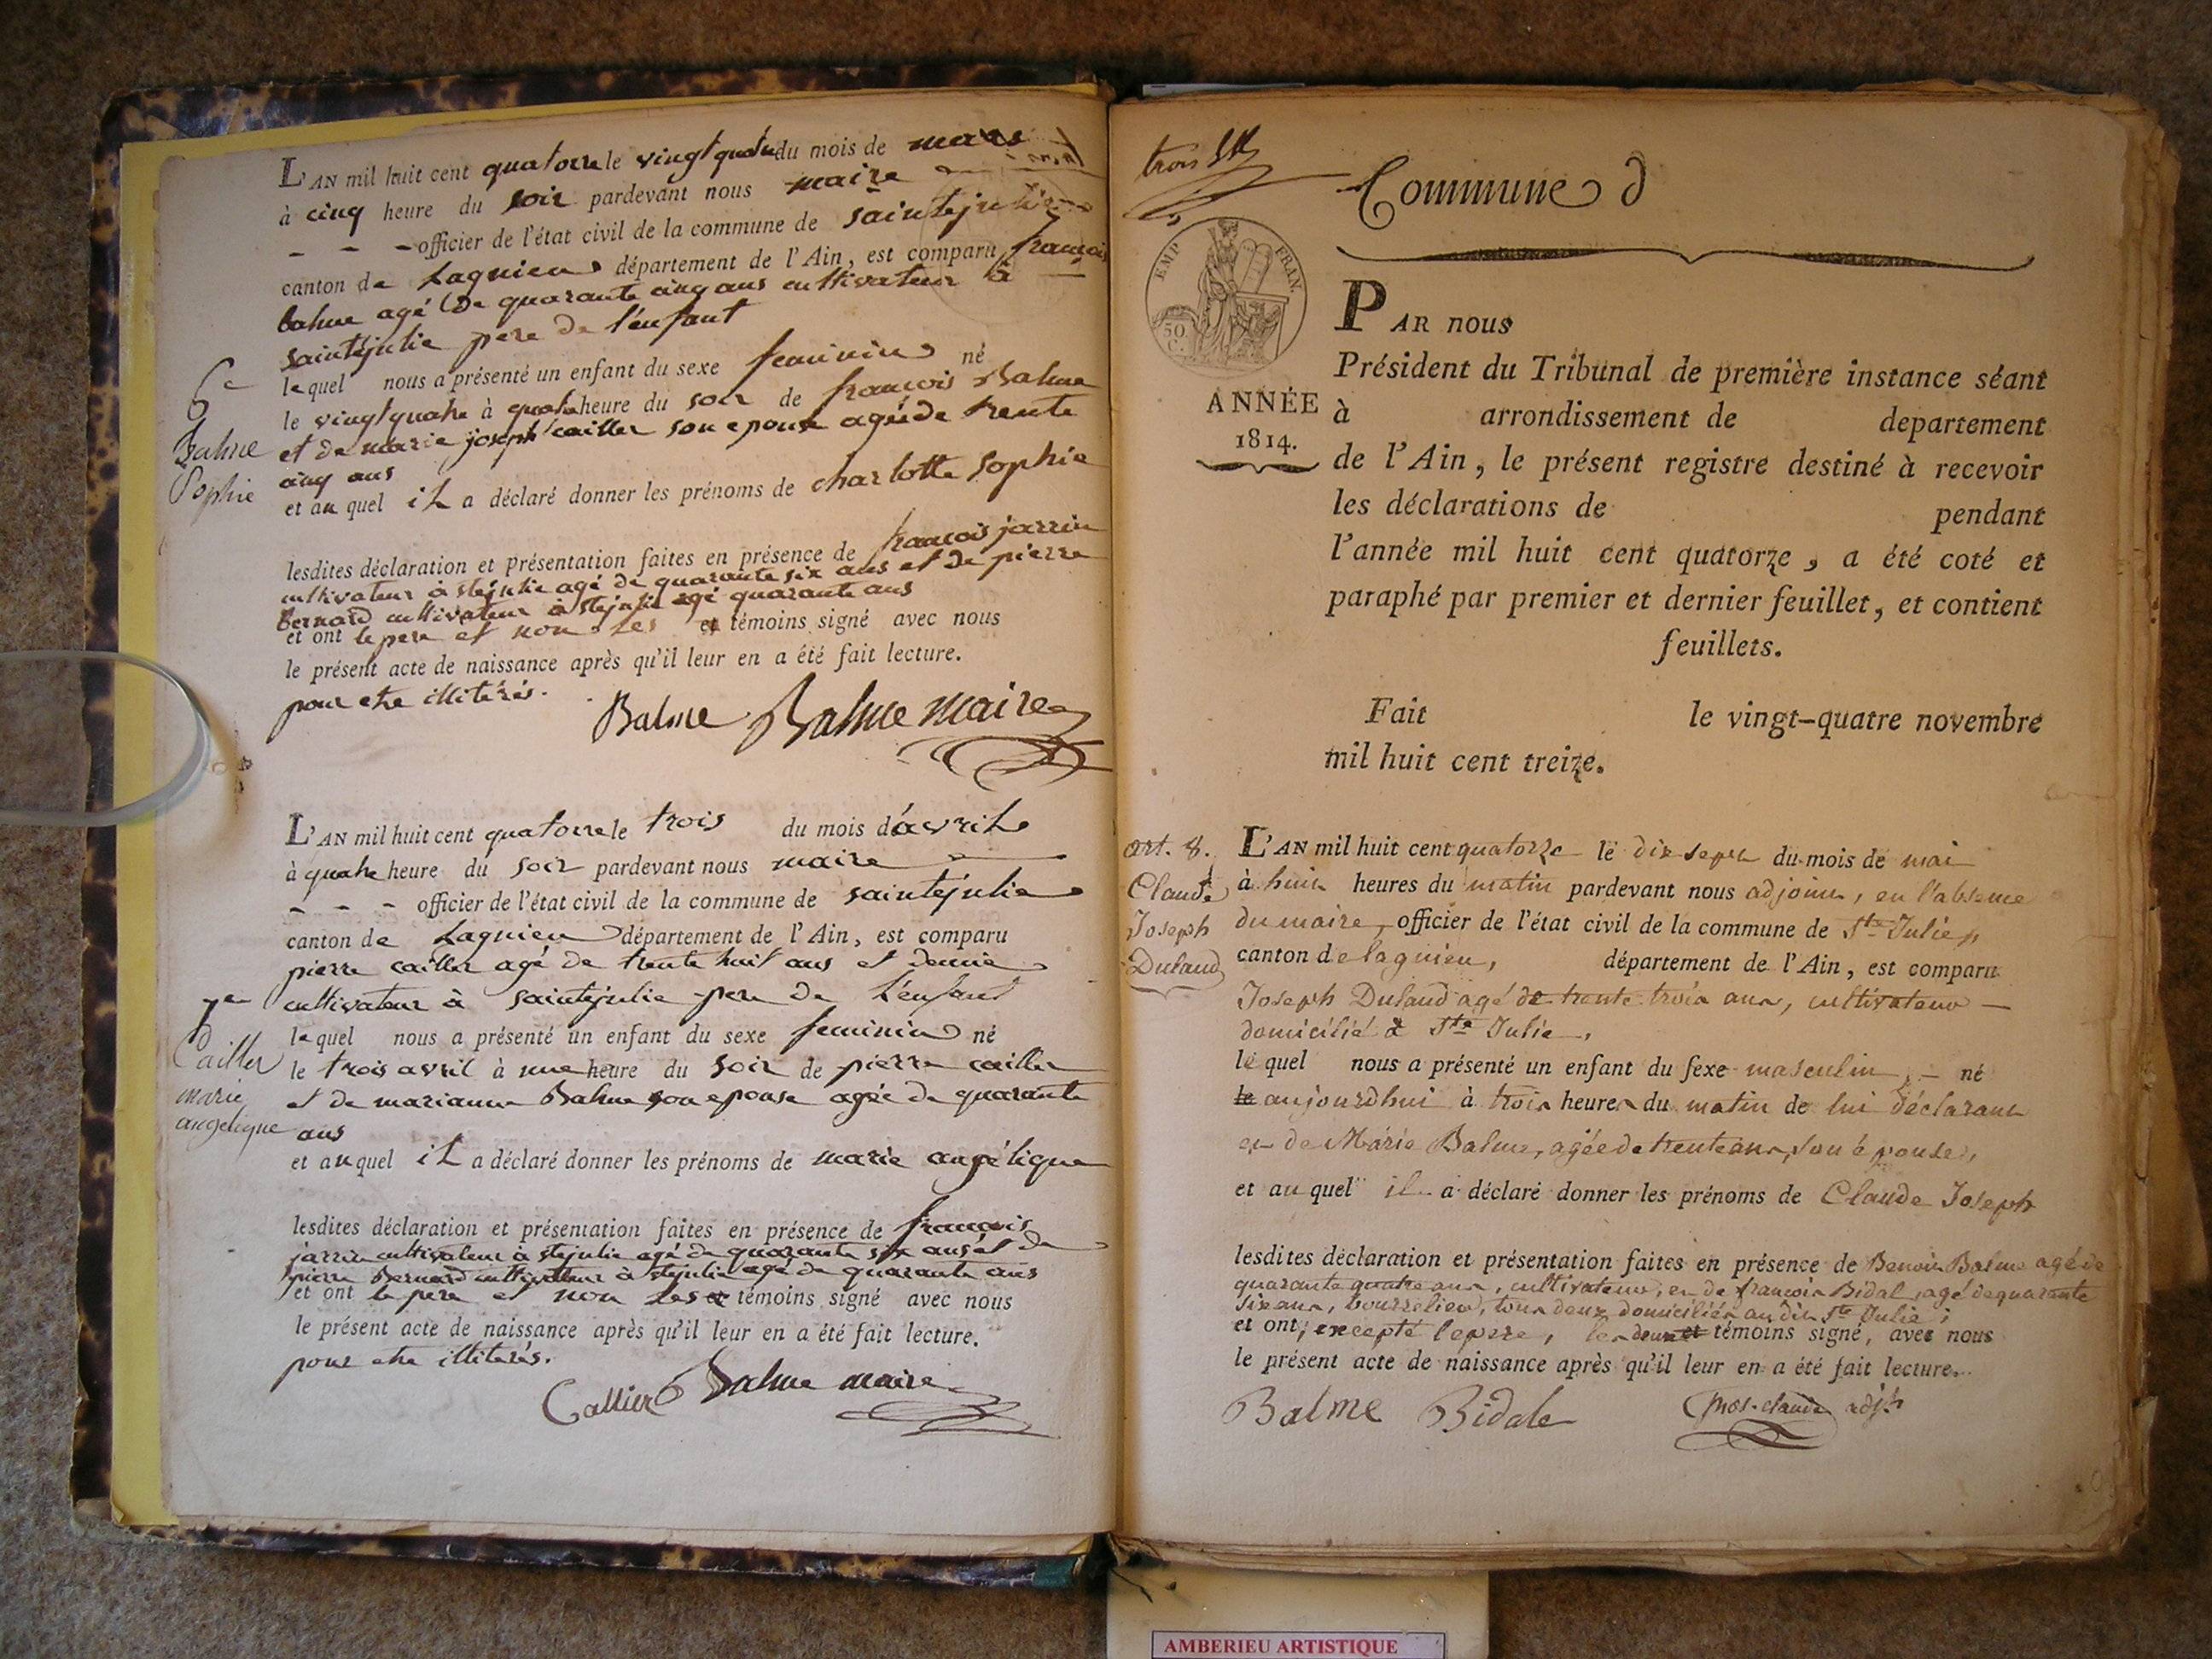 L'AN mil huit cent quatorze le vingt quatre du mois de mars
à cinq heure du soir pardevant nous maire
- - - officier de l'état civil de la commune de saintejulie
canton de Lagnieu département de l'Ain, est comparu françois
balme agé de quarante cinq ans cultivateur à
saintejulie pere de l'enfant
lequel nous a présenté un enfant du sexe feminin né
6e
le vingt quatre à quatre heure du soir de françois Balme
Balme
et de marie joseph cailler son epouse agée de trente
Sophie
cinq ans
et au quel il a déclaré donner les prénoms de charlotte sophie
lesdites déclaration et présentation faites en présence de françois jarrin
cultivateur à stejulie agé de quarante six ans et de pierre
bernard cultivateur à stejulie agé quarante ans
et ont le pere et non les et témoins signé avec nous
le présent acte de naissance après qu'il leur en a été fait lecture.
pour etre illiterés.
Balme Balme maire
L'AN mil huit cent quatorze le trois du mois d'avril
à quatre heure du soir pardevant nous maire
- - - officier de l'état civil de la commune de saintejulie
canton de Lagnieu département de l'Ain, est comparu
pierre cailler agé de trente huit ans et demie
7e
cultivateur à saintejulie pere de l'enfant
lequel nous a présenté un enfant du sexe feminin né
Cailler
le trois avril à une heure du soir de pierre cailler
marie
et de marianne Balme son epouse agée de quarante
angelique
ans
et au quel il a déclaré donner les prénoms de marie angélique
lesdites déclaration et présentation faites en présence de françois
jarrin cultivateur à stejulie agé de quarante six ans et de
pierre Bernard cultivateur à stejulie agé de quarante ans
et ont le pere et non les et témoins signé avec nous
le présent acte de naissance après qu'il leur en a été fait lecture.
pour etre illiterés.
Callier Balme maire
trois
Commune d
EMP. FRAN.
50 C.
ANNÉE
1814.
PAR nous
Président du Tribunal de première instance séant
à arrondissement de departement
de l'Ain, le présent registre destiné à recevoir
les déclarations de pendant
l'année mil huit cent quatorze, a été coté et
paraphé par premier et dernier feuillet, et contient
feuillets.
Fait le vingt-quatre novembre
mil huit cent treize.
art. 8.
Claude
Joseph
Dulaud
L'AN mil huit cent quatorze le dix sept du mois de mai
à huit heures du matin pardevant nous adjoint, en l'absence
du maire, officier de l'état civil de la commune de Ste Julie,
canton de lagnieu, département de l'Ain, est comparu
Joseph Dulaud agé de trente trois ans, cultivateur
domicilié à Ste Julie,
lequel nous a présenté un enfant du sexe masculin, né
le aujourdhui à trois heures du matin de lui déclarant
et de Marie Balme, agée de trente ans, son épouse,
et au quel il a déclaré donner les prénoms de Claude Joseph
lesdites déclaration et présentation faites en présence de Benoit Balme agé de
quarante quatre ans, cultivateur, et de françois Bidal, agé de quarante
six ans, bourrelier, tous deux domiciliés audit Ste Julie;
et ont, excepté le pere, les deux et témoins signé, avec nous
le présent acte de naissance après qu'il leur en a été fait lecture.
Balme Bidale claude adjt
AMBERIEU ARTISTIQUE